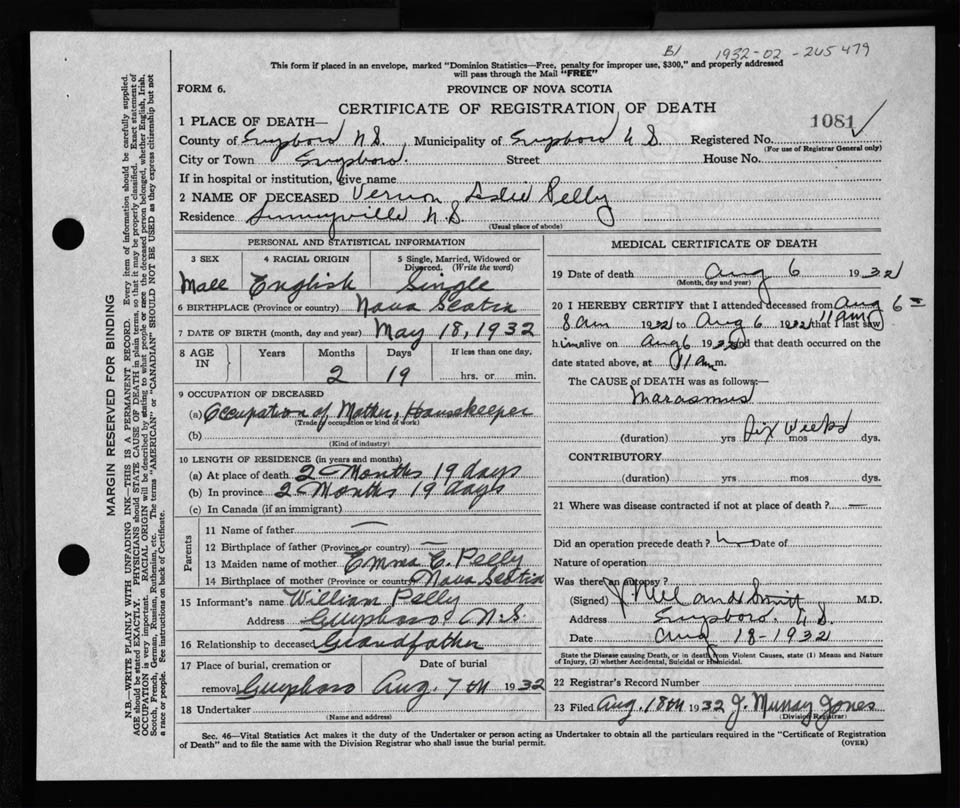 B1 1932-02-245479
This form if placed in an envelope, marked "Dominion Statistics—Free, penalty for improper use, $300," and properly addressed
will pass through the Mail "FREE"
FORM 6. PROVINCE OF NOVA SCOTIA
CERTIFICATE OF REGISTRATION OF DEATH
1081
1 PLACE OF DEATH—
County of Guysboro N.S. Municipality of Guysboro N.S. Registered No.
(For use of Registrar General only)
City or Town Guysboro. Street House No.
If in hospital or institution, give name
2 NAME OF DECEASED Vernon Leslie Pelly
Residence Sunnyville N.S.
(Usual place of abode)
PERSONAL AND STATISTICAL INFORMATION
3 SEX 4 RACIAL ORIGIN 5 Single, Married, Widowed or Divorced. (Write the word)
Male English Single
6 BIRTHPLACE (Province or country) Nova Scotia
7 DATE OF BIRTH (month, day and year) May 18, 1932
8 AGE IN Years Months Days If less than one day,
2 19 hrs. or min.
9 OCCUPATION OF DECEASED
(a) Occupation of Mother, Housekeeper
(Trade, occupation or kind of work)
(b)
(Kind of industry)
10 LENGTH OF RESIDENCE (in years and months)
(a) At place of death 2 Months 19 days
(b) In province 2 Months 19 days
(c) In Canada (if an immigrant)
Parents
11 Name of father —
12 Birthplace of father (Province or country) —
13 Maiden name of mother Emma E. Pelly
14 Birthplace of mother (Province or country) Nova Scotia
15 Informant's name William Pelly
Address Guysboro N.S.
16 Relationship to deceased Grandfather
17 Place of burial, cremation or Date of burial
removal Guysboro Aug. 7th 1932
18 Undertaker
(Name and address)
MEDICAL CERTIFICATE OF DEATH
19 Date of death Aug 6 1932
(Month, day and year)
20 I HEREBY CERTIFY that I attended deceased from Aug 6
8 am 1932 to Aug 6 11 am 1932 that I last saw
him alive on Aug 6 1932 and that death occurred on the
date stated above, at 11 a.m.
The CAUSE of DEATH was as follows:—
Marasmus
Six Weeks
(duration) yrs mos dys.
CONTRIBUTORY
(duration) yrs mos dys.
21 Where was disease contracted if not at place of death? —
Did an operation precede death? Date of
Nature of operation
Was there an autopsy?
(Signed) M.D.
Address Guysboro. N.S.
Date Aug 18-1932
State the Disease causing Death, or in death from Violent Causes, state (1) Means and Nature
of Injury, (2) whether Accidental, Suicidal or Homicidal.
22 Registrar's Record Number
23 Filed Aug. 18th 1932 J. Murray Jones
(Division Registrar)
Sec. 46—Vital Statistics Act makes it the duty of the Undertaker or person acting as Undertaker to obtain all the particulars required in the "Certificate of Registration
of Death" and to file the same with the Division Registrar who shall issue the burial permit. (OVER)
MARGIN RESERVED FOR BINDING
N.B.—WRITE PLAINLY WITH UNFADING INK—THIS IS A PERMANENT RECORD. Every item of information should be carefully supplied.
AGE should be stated EXACTLY. PHYSICIANS should STATE CAUSE OF DEATH in plain terms, so that it may be properly classified. Exact statement of
OCCUPATION is very important. RACIAL ORIGIN will be described by stating to what people or race the deceased person belonged, whether English, Irish,
Scotch, French, German, Russian, Ruthenian, etc. The terms "AMERICAN" or "CANADIAN" SHOULD NOT BE USED as they express citizenship but not
a race or people. See instructions on back of Certificate.